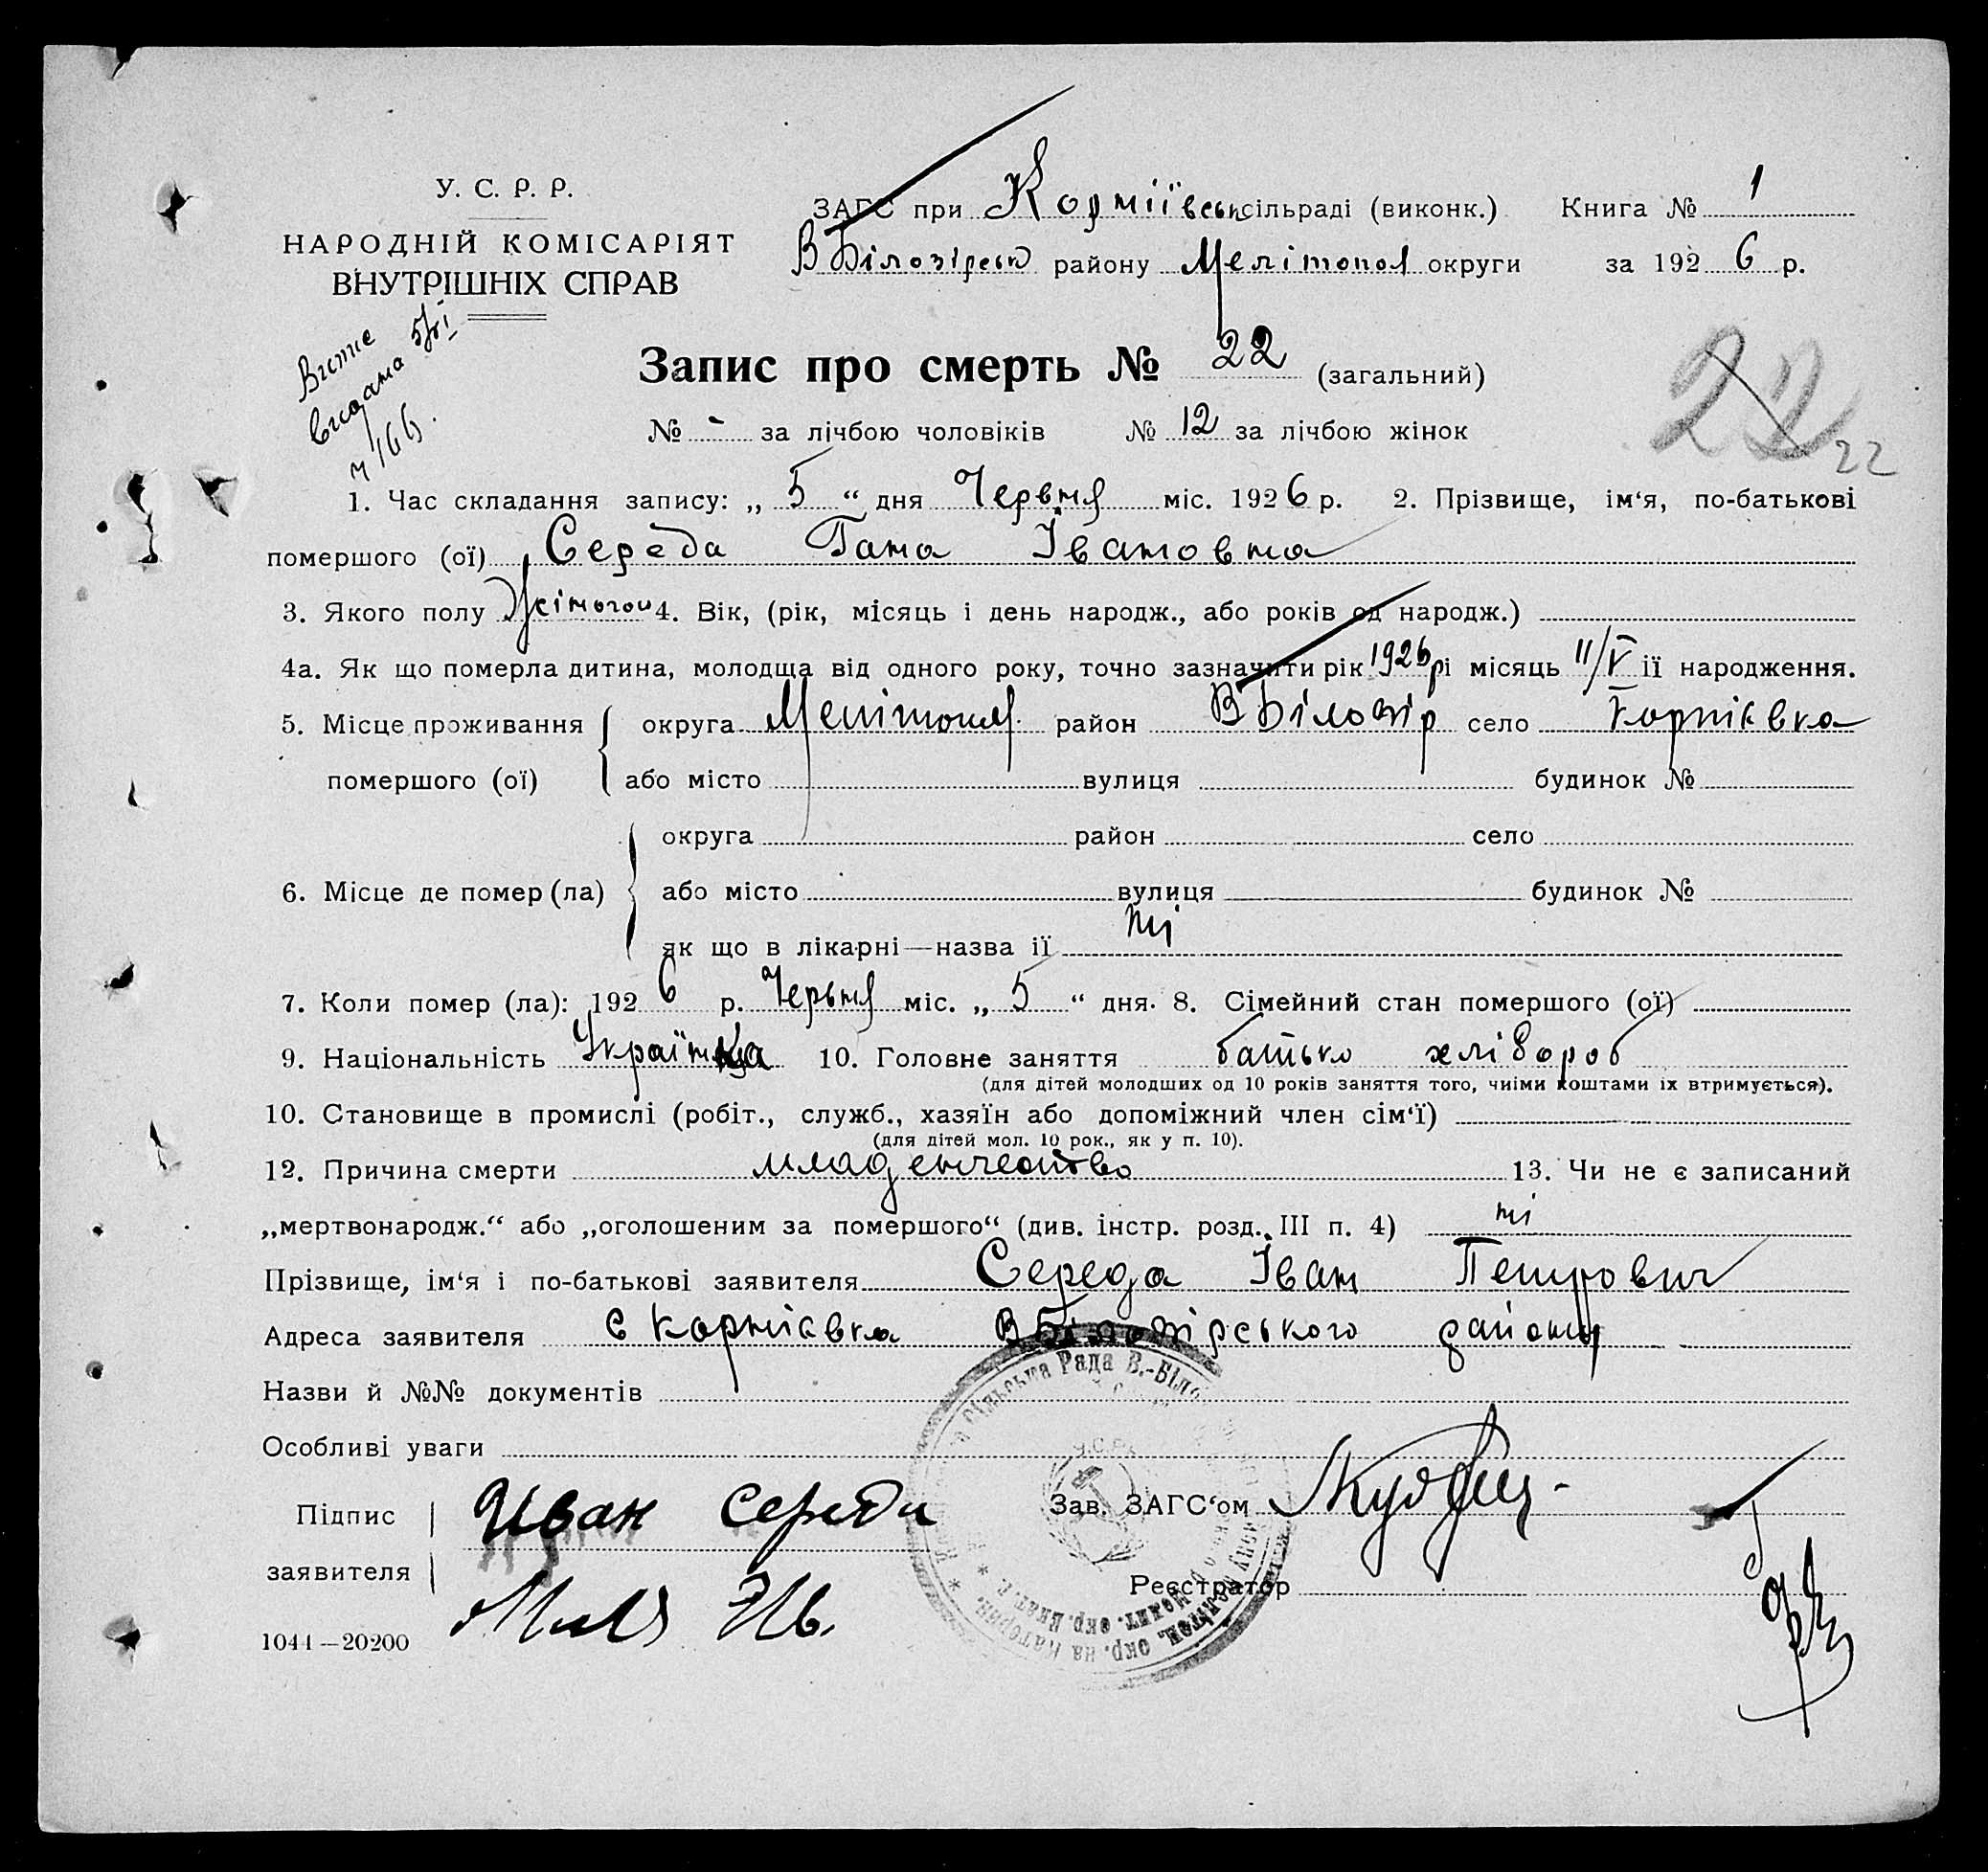 У. С. Р. Р.
НАРОДНІЙ КОМІСАРІЯТ
ВНУТРІШНІХ СПРАВ
ЗАГС при Корніївськ сільраді (виконк.) Книга № 1
В Білозірськ району Мелітопол округи за 1926 р.
Витяг
видано
Запис про смерть № 22 (загальний)
22
22
№ - за лічбою чоловіків № 12 за лічбою жінок
1. Час складання запису: „ 5 “ дня Червня міс. 1926 р. 2. Прізвище, ім‘я, по-батькові
помершого (ої) Середа Гана Івановна
3. Якого полу Жіночого 4. Вік, (рік, місяць і день народж., або років од народж.)
4а. Як що померла дитина, молодща від одного року, точно зазначити рік 1926 рі місяць 11/V ії народження.
5. Місце проживання округа Мелітополя район В Білозір село Корніівка
помершого (ої) або місто вулиця будинок №
округа район село
6. Місце де помер (ла) або місто вулиця будинок №
як що в лікарні—назва ії ні
7. Коли помер (ла): 1926 р. Червня міс. „ 5 “ дня. 8. Сімейний стан помершого (ої)
9. Національність Українка 10. Головне заняття батько хлібороб
(для дітей молодших од 10 років заняття того, чиїми коштами їх втримується).
10. Становище в промислі (робіт., служб., хазяїн або допоміжний член сім‘ї)
(для дітей мол. 10 рок., як у п. 10).
12. Причина смерти младенчество 13. Чи не є записаний
„мертвонародж.“ або „оголошеним за помершого“ (див. інстр. розд. III п. 4) ні
Прізвище, ім‘я і по-батькові заявителя Середа Іван Петрович
Адреса заявителя с Корніівка В Білозірського району
Назви й №№ документів
Особливі уваги
Підпис Иван Середа
заявителя
Зав. ЗАГС‘ом
Реєстратор
1044—20200
сільська Рада В.-Біло
У.С.Р.Р.